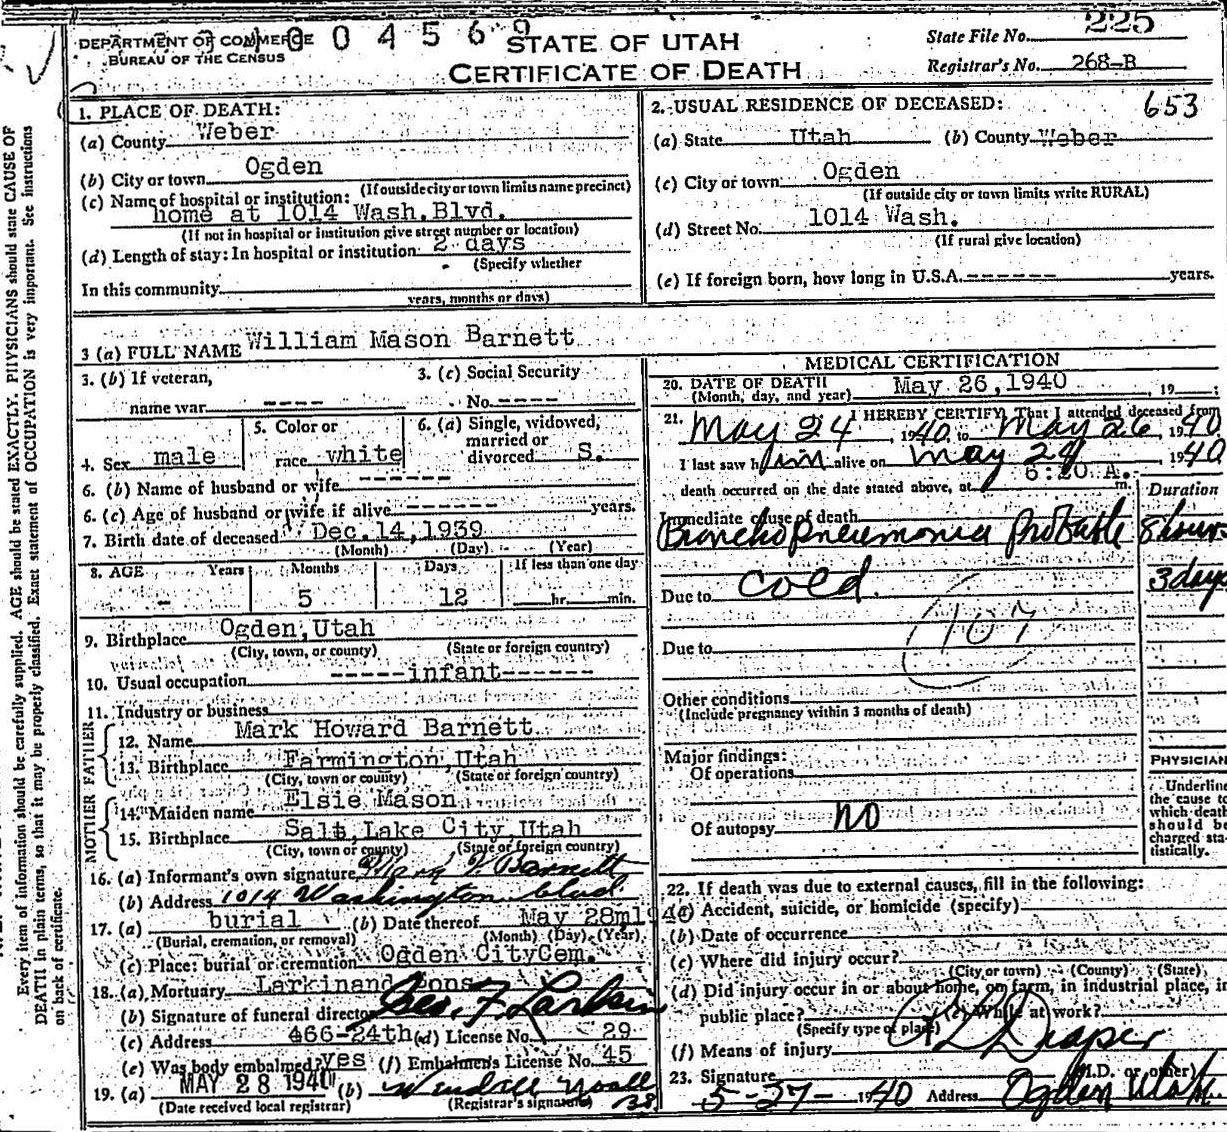 DEPARTMENT OF COMMERCE
BUREAU OF THE CENSUS
0 0 4 5 6 9
STATE OF UTAH
CERTIFICATE OF DEATH
State File No. 225
Registrar's No. 268-B
653
Every item of information should be carefully supplied. AGE should be stated EXACTLY. PHYSICIANS should state CAUSE OF
DEATH in plain terms, so that it may be properly classified. Exact statement of OCCUPATION is very important. See instructions
on back of certificate.
1. PLACE OF DEATH:
(a) County Weber
(b) City or town Ogden
(If outside city or town limits name precinct)
(c) Name of hospital or institution:
home at 1014 Wash.Blvd.
(If not in hospital or institution give street number or location)
(d) Length of stay: In hospital or institution 2 days
(Specify whether
In this community
years, months or days)
2. USUAL RESIDENCE OF DECEASED:
(a) State Utah (b) County Weber
(c) City or town Ogden
(If outside city or town limits write RURAL)
(d) Street No. 1014 Wash.
(If rural give location)
(e) If foreign born, how long in U.S.A. ------ years.
3 (a) FULL NAME William Mason Barnett
3. (b) If veteran,
name war ----
3. (c) Social Security
No. ----
4. Sex male
5. Color or
race white
6. (a) Single, widowed,
married or
divorced S.
6. (b) Name of husband or wife ------
6. (c) Age of husband or wife if alive ------ years.
7. Birth date of deceased Dec.14,1939
(Month) (Day) (Year)
8. AGE Years Months Days If less than one day
- 5 12 hr. min.
9. Birthplace Ogden,Utah
(City, town, or county) (State or foreign country)
10. Usual occupation -----infant------
11. Industry or business
FATHER
12. Name Mark Howard Barnett
13. Birthplace Farmington,Utah
(City, town or county) (State or foreign country)
MOTHER
14. Maiden name Elsie Mason
15. Birthplace Salt Lake City,Utah
(City, town or county) (State or foreign country)
16. (a) Informant's own signature Mark Barnett
(b) Address 1014 Washington blvd.
17. (a) burial (b) Date thereof May 28m1940
(Burial, cremation, or removal) (Month) (Day) (Year)
(c) Place: burial or cremation Ogden CityCem.
18. (a) Mortuary Larkinand Sons
(b) Signature of funeral director Geo. F. Larkin
(c) Address 466-24th (d) License No. 29
(e) Was body embalmed? yes (f) Embalmer's License No. 45
19. (a) MAY 28 1940 (b)
(Date received local registrar) (Registrar's signature) 38
MEDICAL CERTIFICATION
20. DATE OF DEATH May 26,1940 , 19 ;
(Month, day, and year)
21. I HEREBY CERTIFY, That I attended deceased from
May 24, 1940, to May 26, 1940
I last saw him alive on May 24 1940
death occurred on the date stated above, at 6:20 A. m.
Duration
Immediate cause of death
Broncho Pneumonia probable 8 hours
Due to cold 3 days
107
Due to
Other conditions
(Include pregnancy within 3 months of death)
Major findings:
Of operations
Of autopsy no
PHYSICIAN
Underline
the cause to
which death
should be
charged sta-
tistically.
22. If death was due to external causes, fill in the following:
(a) Accident, suicide, or homicide (specify)
(b) Date of occurrence
(c) Where did injury occur?
(City or town) (County) (State)
(d) Did injury occur in or about home, on farm, in industrial place, in
public place? (e) While at work?
(Specify type of place)
(f) Means of injury
23. Signature Draper (M.D. or other)
5-27-1940 Address Ogden Utah